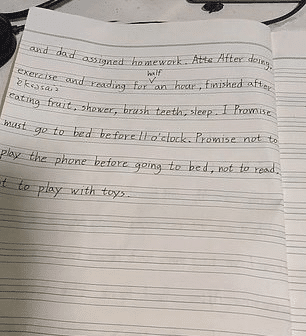 and dad assigned homework. After doing
exercise and reading for half an hour, finished after
eating fruit, shower, brush teeth, sleep. I Promise
must go to bed before 11 o'clock. Promise not to
play the phone before going to bed, not to read,
t to play with toys.